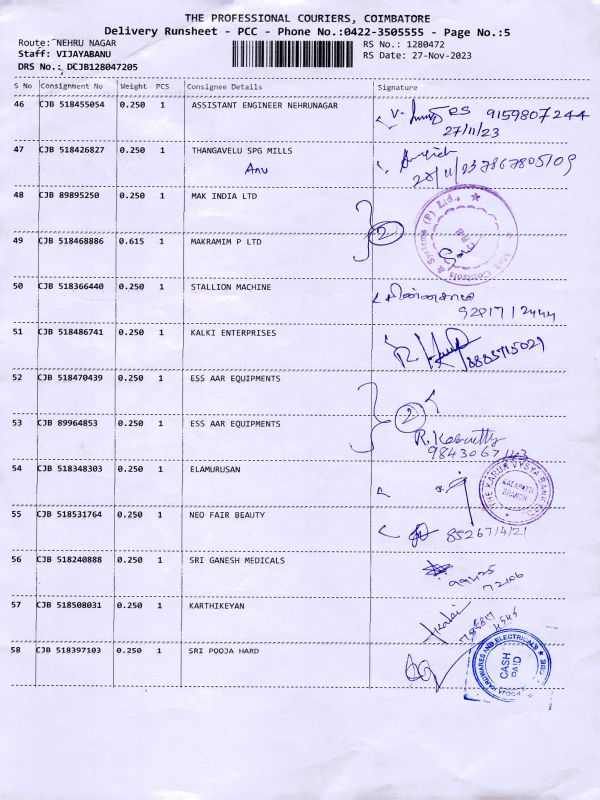 THE PROFESSIONAL COURIERS, COIMBATORE
Delivery Runsheet - PCC - Phone No.:0422-3505555 - Page No.:5
Route: NEHRU NAGAR RS No.: 1280472
Staff: VIJAYABANU RS Date: 27-Nov-2023
DRS No.: DCJB128047205
S No Consignment No Weight PCS Consignee Details Signature
46 CJB 518455054 0.250 1 ASSISTANT ENGINEER NEHRUNAGAR 9159807244
27/11/23
47 CJB 518426827 0.250 1 THANGAVELU SPG MILLS
Anu
48 CJB 89895250 0.250 1 MAK INDIA LTD
2
49 CJB 518468886 0.615 1 MAKRAMIM P LTD
Mak Controls & Systems (P) Ltd.,
50 CJB 518366440 0.250 1 STALLION MACHINE
51 CJB 518486741 0.250 1 KALKI ENTERPRISES
52 CJB 518470439 0.250 1 ESS AAR EQUIPMENTS
2
53 CJB 89964853 0.250 1 ESS AAR EQUIPMENTS
54 CJB 518348303 0.250 1 ELAMURUSAN
THE KARUR VYSYA BANK
BRANCH
55 CJB 518531764 0.250 1 NEO FAIR BEAUTY
56 CJB 518240888 0.250 1 SRI GANESH MEDICALS
57 CJB 518508031 0.250 1 KARTHIKEYAN
58 CJB 518397103 0.250 1 SRI POOJA HARD
HARDWARES AND ELECTRICALS
CASH
PAID